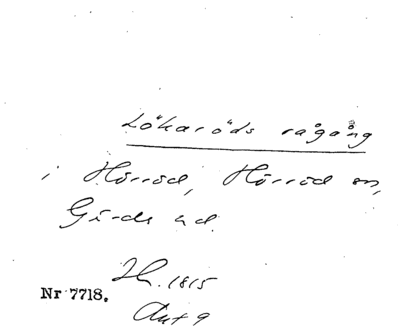 Lökaröds rågång
i Hörröd, Hörröd sn,
Gärds hd.
Ih. 1815
Nr 7718.
Akt 9